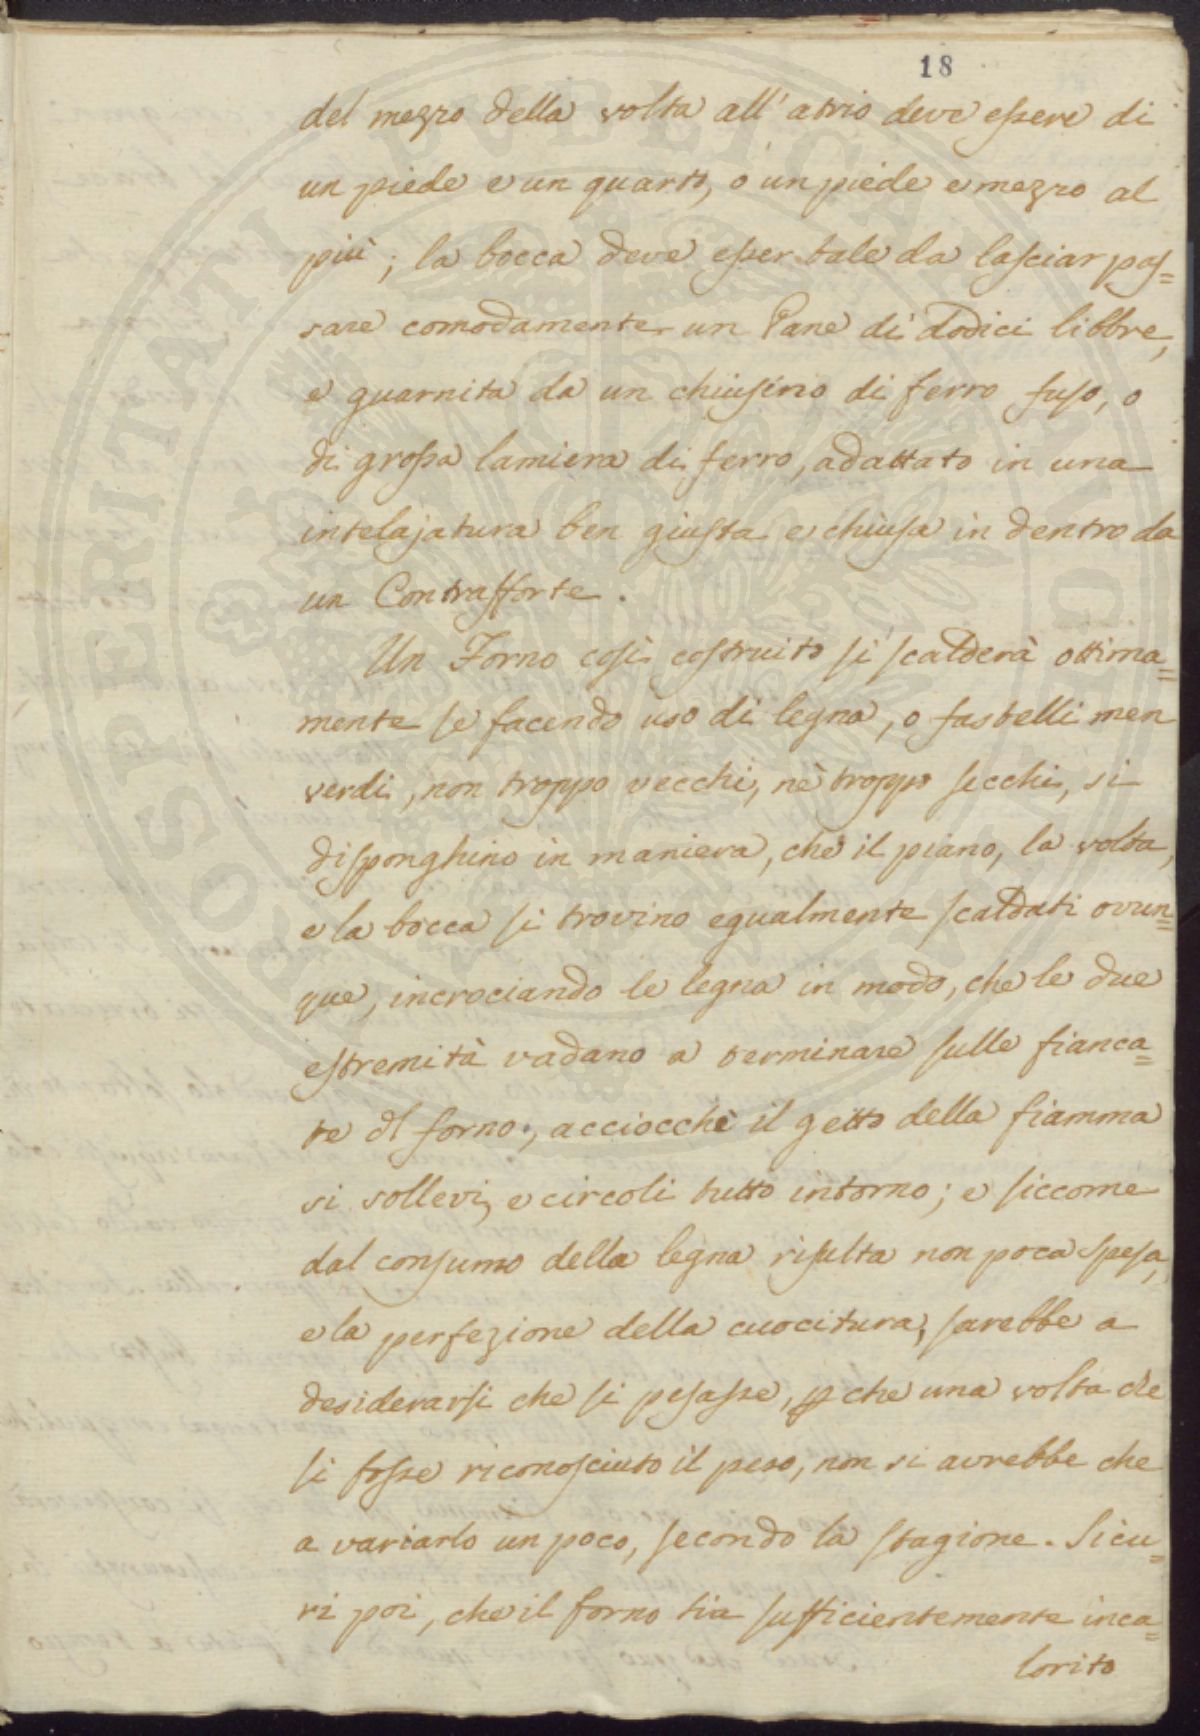 18
del mezzo della volta all'atrio deve essere di
un piede e un quarto, o un piede e mezzo al
più; la bocca deve esser tale da lasciar pas=
sare comodamente un Pane di dodici libbre,
e guarnita da un chiusino di ferro fuso, o
di grossa lamiera di ferro, adattato in una
intelajatura ben giusta e chiusa in dentro da
un Contrafforte.
Un Forno così costruito si scalderà ottima=
mente se facendo uso di legna, o fastelli men
verdi, non troppo vecchi, nè troppo secchi, si
disponghino in maniera, che il piano, la volta,
e la bocca si trovino egualmente scaldati ovun=
que, incrociando le legna in modo, che le due
estremità vadano a terminare sulle fianca=
te dl forno, acciocchè il getto della fiamma
si sollevi, e circoli tutto intorno; e siccome
dal consumo della legna risulta non poca spesa,
e la perfezione della cuocitura, sarebbe a
desiderarsi che si pesasse, pche una volta che
si fosse riconosciuto il peso, non si avrebbe che
a variarlo un poco, secondo la stagione. Sicu=
ri poi, che il forno sia sufficientemente inca=
lorito
SOSPERITATI PVBLICAE AVGENDAE